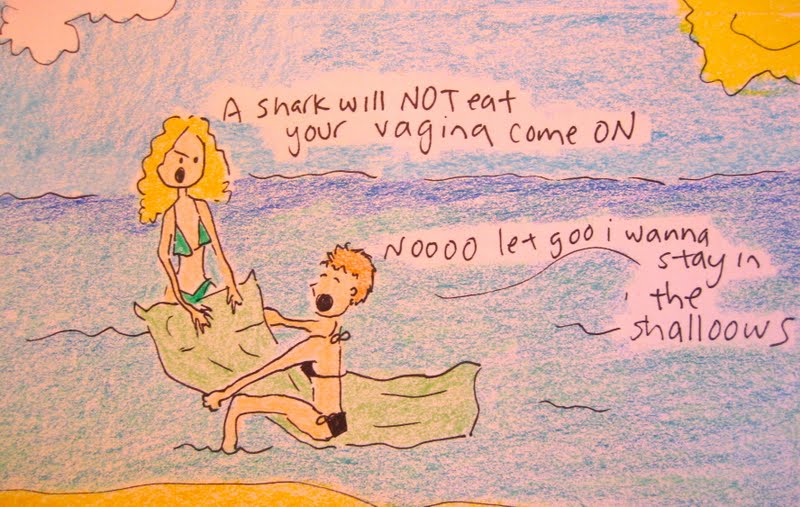 A shark will NOT eat
your vagina come ON
NOOOO let goo i wanna
stay in
the
shalloows